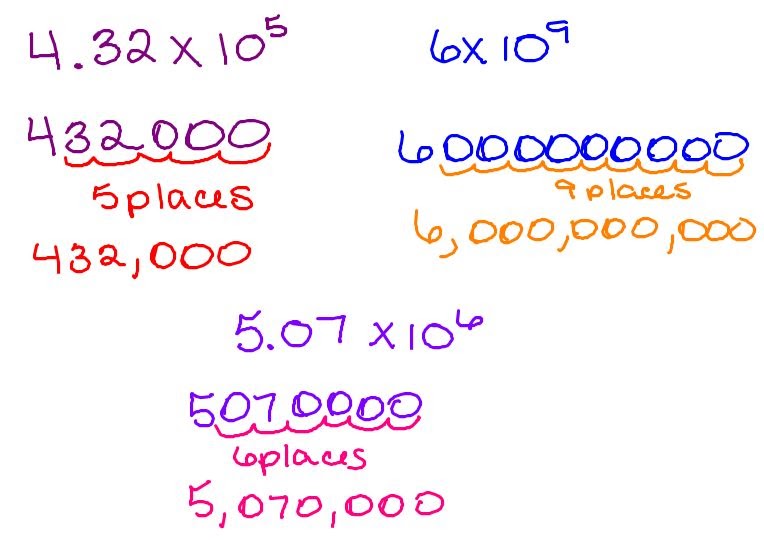 4.32 x 10⁵
432000
5places
432,000
6x 10⁹
6000000000
9places
6,000,000,000
5.07 x10⁶
5070000
6places
5,070,000